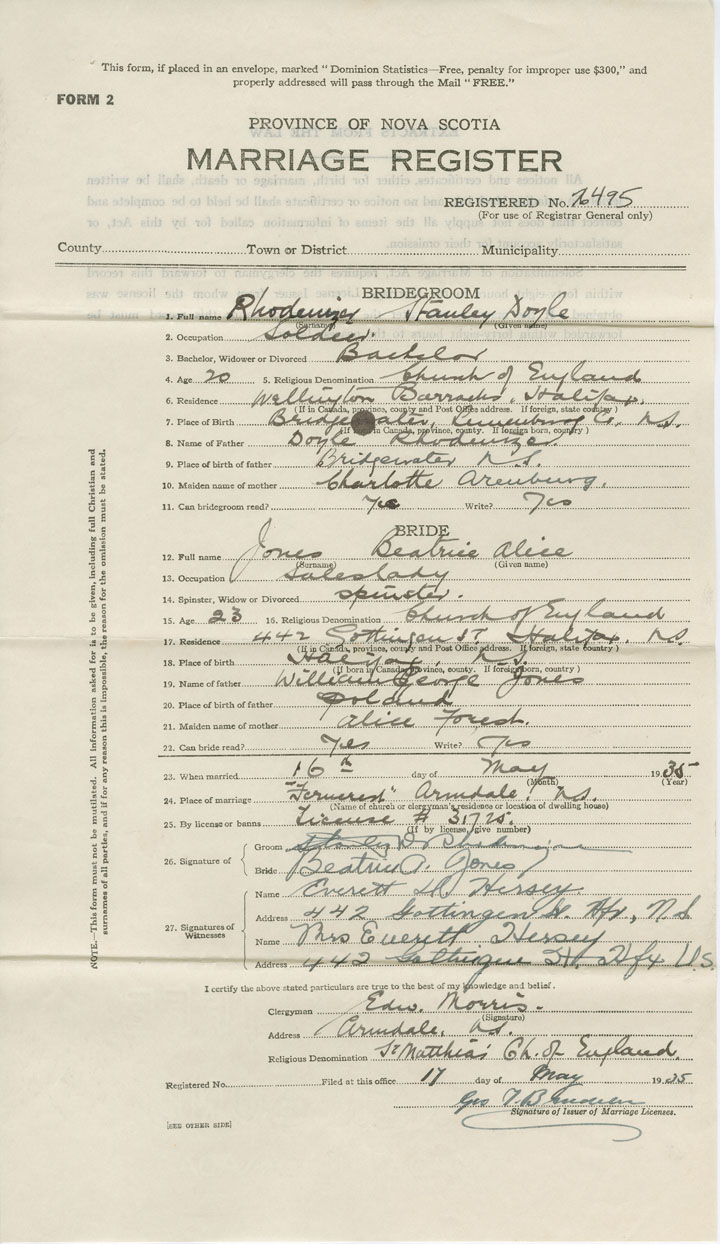 This form, if placed in an envelope, marked "Dominion Statistics—Free, penalty for improper use $300," and
properly addressed will pass through the Mail "FREE."
FORM 2
PROVINCE OF NOVA SCOTIA
MARRIAGE REGISTER
REGISTERED No. 76495
(For use of Registrar General only)
County Town or District Municipality
BRIDEGROOM
1. Full name Rhodenizer Stanley Doyle
(Surname) (Given name)
2. Occupation Soldier.
3. Bachelor, Widower or Divorced Bachelor
4. Age 20 5. Religious Denomination Church of England
6. Residence Wellington Barracks, Halifax.
(If in Canada, province, county and Post Office address. If foreign, state country)
7. Place of Birth Bridgewater, Lunenburg Co. N.S.
(If born in Canada, province, county. If foreign born, country)
8. Name of Father Doyle Rhodenizer
9. Place of birth of father Bridgewater N.S.
10. Maiden name of mother Charlotte Arenburg.
11. Can bridegroom read? Yes Write? Yes
BRIDE
12. Full name Jones Beatrice Alice
(Surname) (Given name)
13. Occupation Saleslady
14. Spinster, Widow or Divorced spinster.
15. Age 23 16. Religious Denomination Church of England
17. Residence 442 Gottingen St. Halifax. N.S
(If in Canada, province, county and Post Office address. If foreign, state country)
18. Place of birth Halifax, N.S.
(If born in Canada, province, county. If foreign born, country)
19. Name of father William George Jones
20. Place of birth of father
21. Maiden name of mother Alice Forest.
22. Can bride read? Yes Write? Yes
23. When married 16th day of May 1935
(Month) (Year)
24. Place of marriage "Fernerest" Armdale, N.S.
(Name of church or clergyman's residence or location of dwelling house)
25. By license or banns License # 31725.
(If by license, give number)
26. Signature of
Groom Stanley D. Rhodenizer
Bride Beatrice A. Jones
27. Signatures of Witnesses
Name Everett Hersey
Address 442 Gottingen St. Hfx, N.S
Name Mrs Everett Hersey
Address 442 Gottingen St. Hfx N.S.
I certify the above stated particulars are true to the best of my knowledge and belief.
Clergyman Edw. Morris.
(Signature)
Address Armdale, N.S.
Religious Denomination St Matthias' Ch. of England.
Registered No. Filed at this office 17 day of May 1935
Geo
Signature of Issuer of Marriage Licenses.
[SEE OTHER SIDE]
NOTE.—This form must not be mutilated. All information asked for is to be given, including full Christian and
surnames of all parties, and if for any reason this is impossible, the reason for the omission must be stated.